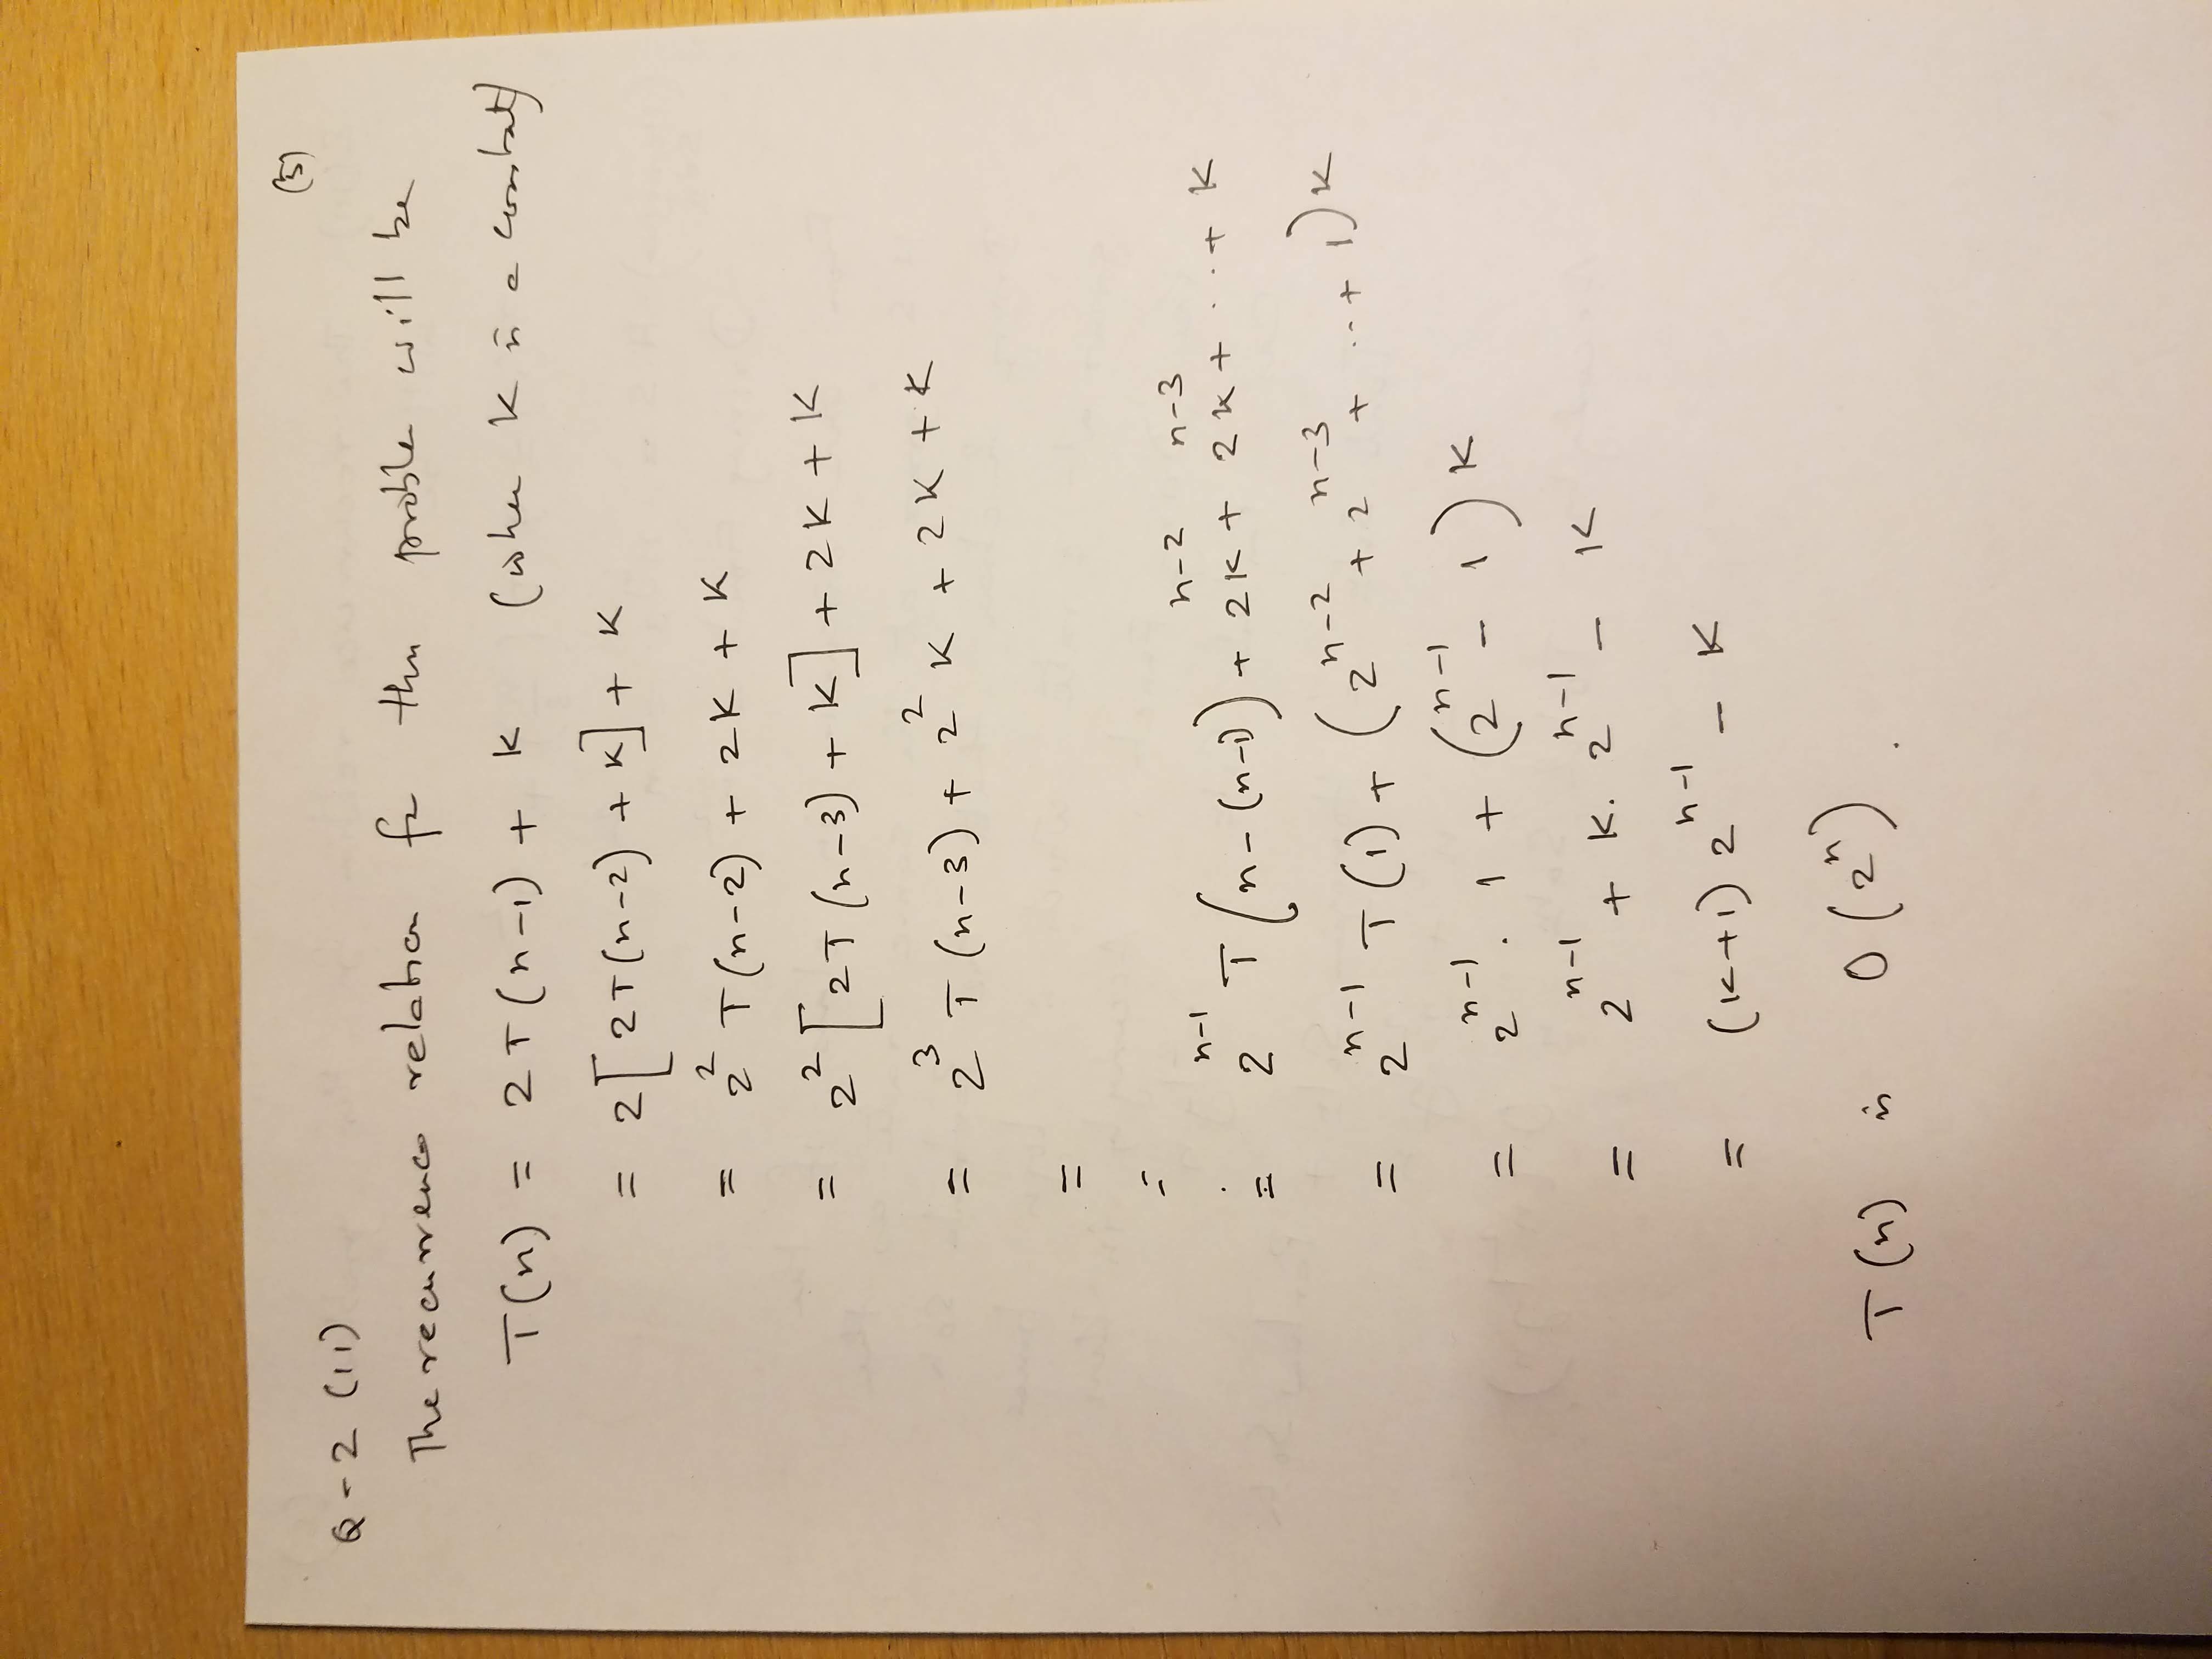 (5)
Q-2 (11)
The recurrence relation for this problem will be
T(n) = 2T(n-1) + K (where K is a constant)
= 2[2T(n-2) + K] + K
= 2² T(n-2) + 2K + K
= 2² [2T(n-3) + K] + 2K + K
= 2³ T(n-3) + 2² K + 2K + K
=
=
.
= 2^(n-1) T(n-(n-1)) + 2^(n-2) K + 2^(n-3) K + ... + K
= 2^(n-1) T(1) + (2^(n-2) + 2^(n-3) + ... + 1) K
= 2^(n-1) . 1 + (2^(n-1) - 1) K
= 2^(n-1) + K. 2^(n-1) - K
= (K+1) 2^(n-1) - K
T(n) is O(2^n).